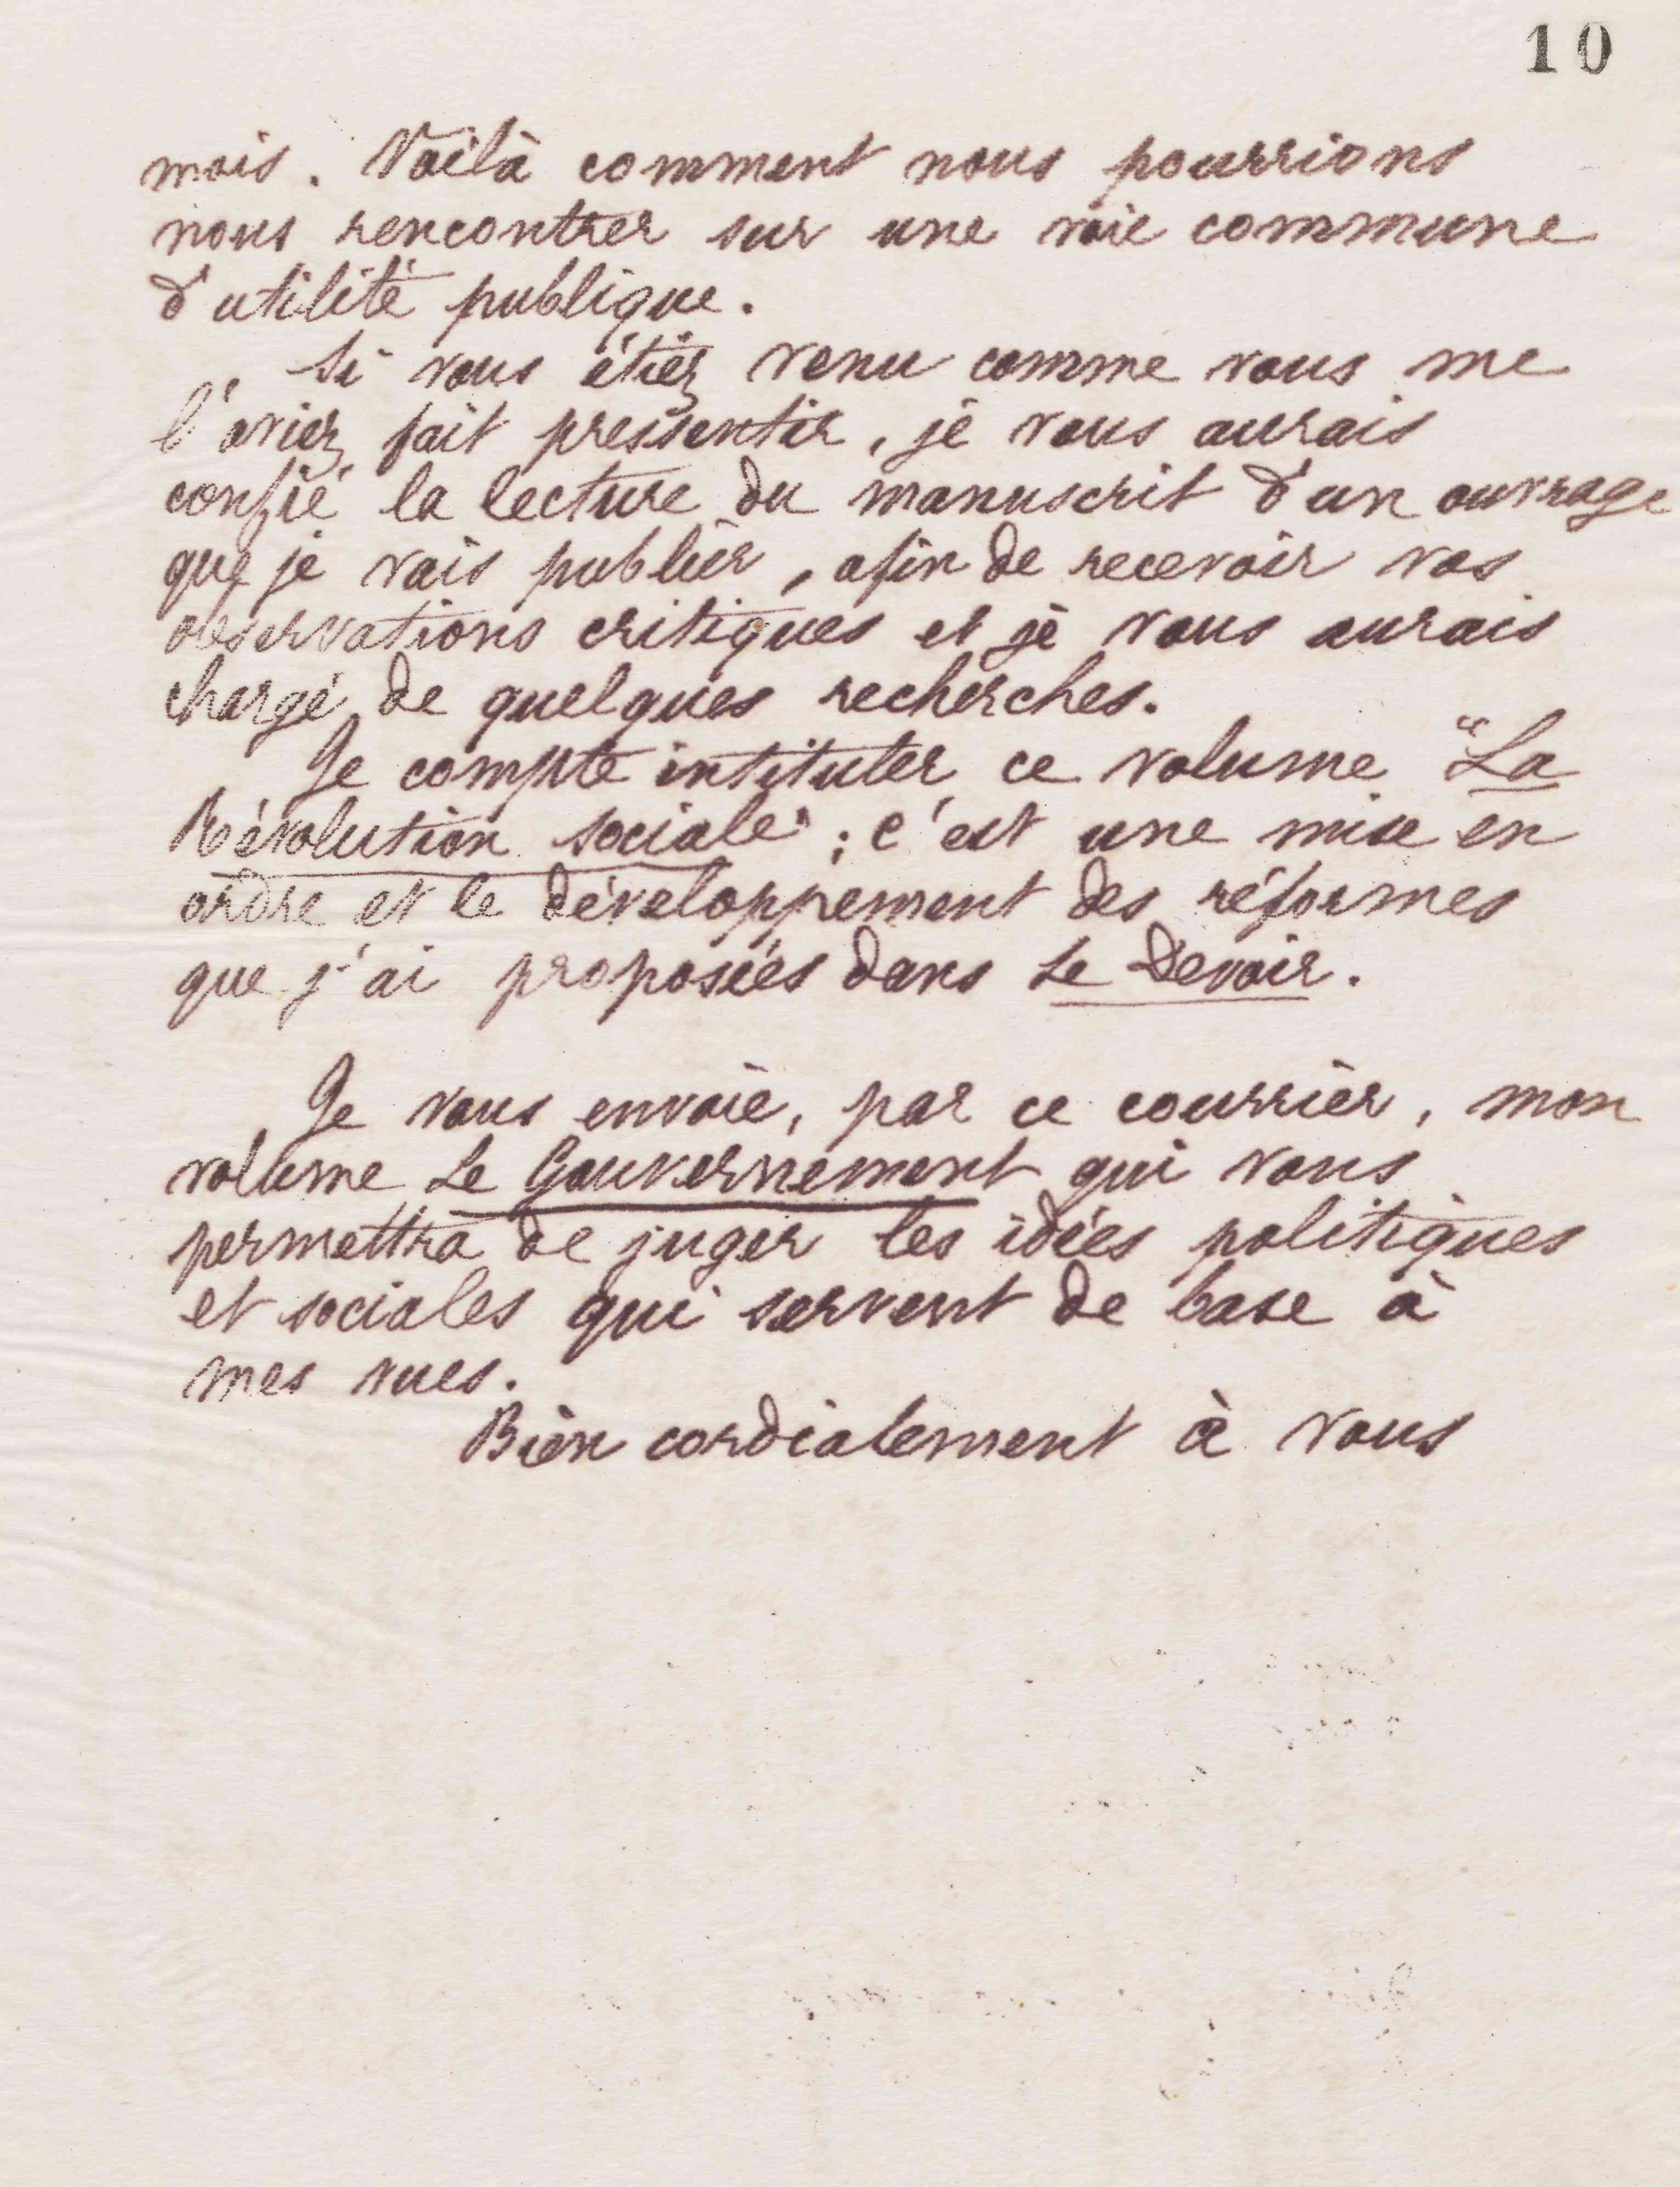 10
mois. Voilà comment nous pourrions
nous rencontrer sur une voie commune
d'utilité publique.
Si vous étiez venu comme vous me
l'aviez fait pressentir, je vous aurais
confié la lecture du manuscrit d'un ouvrage
que je vais publier, afin de recevoir vos
observations critiques et je vous aurais
chargé de quelques recherches.
Je compte intituler ce volume "La
Révolution sociale"; c'est une mise en
ordre et le développement des réformes
que j'ai proposées dans Le Devoir.
Je vous envoie, par ce courrier, mon
volume Le Gouvernement qui vous
permettra de juger les idées politiques
et sociales qui servent de base à
mes vues.
Bien cordialement à vous